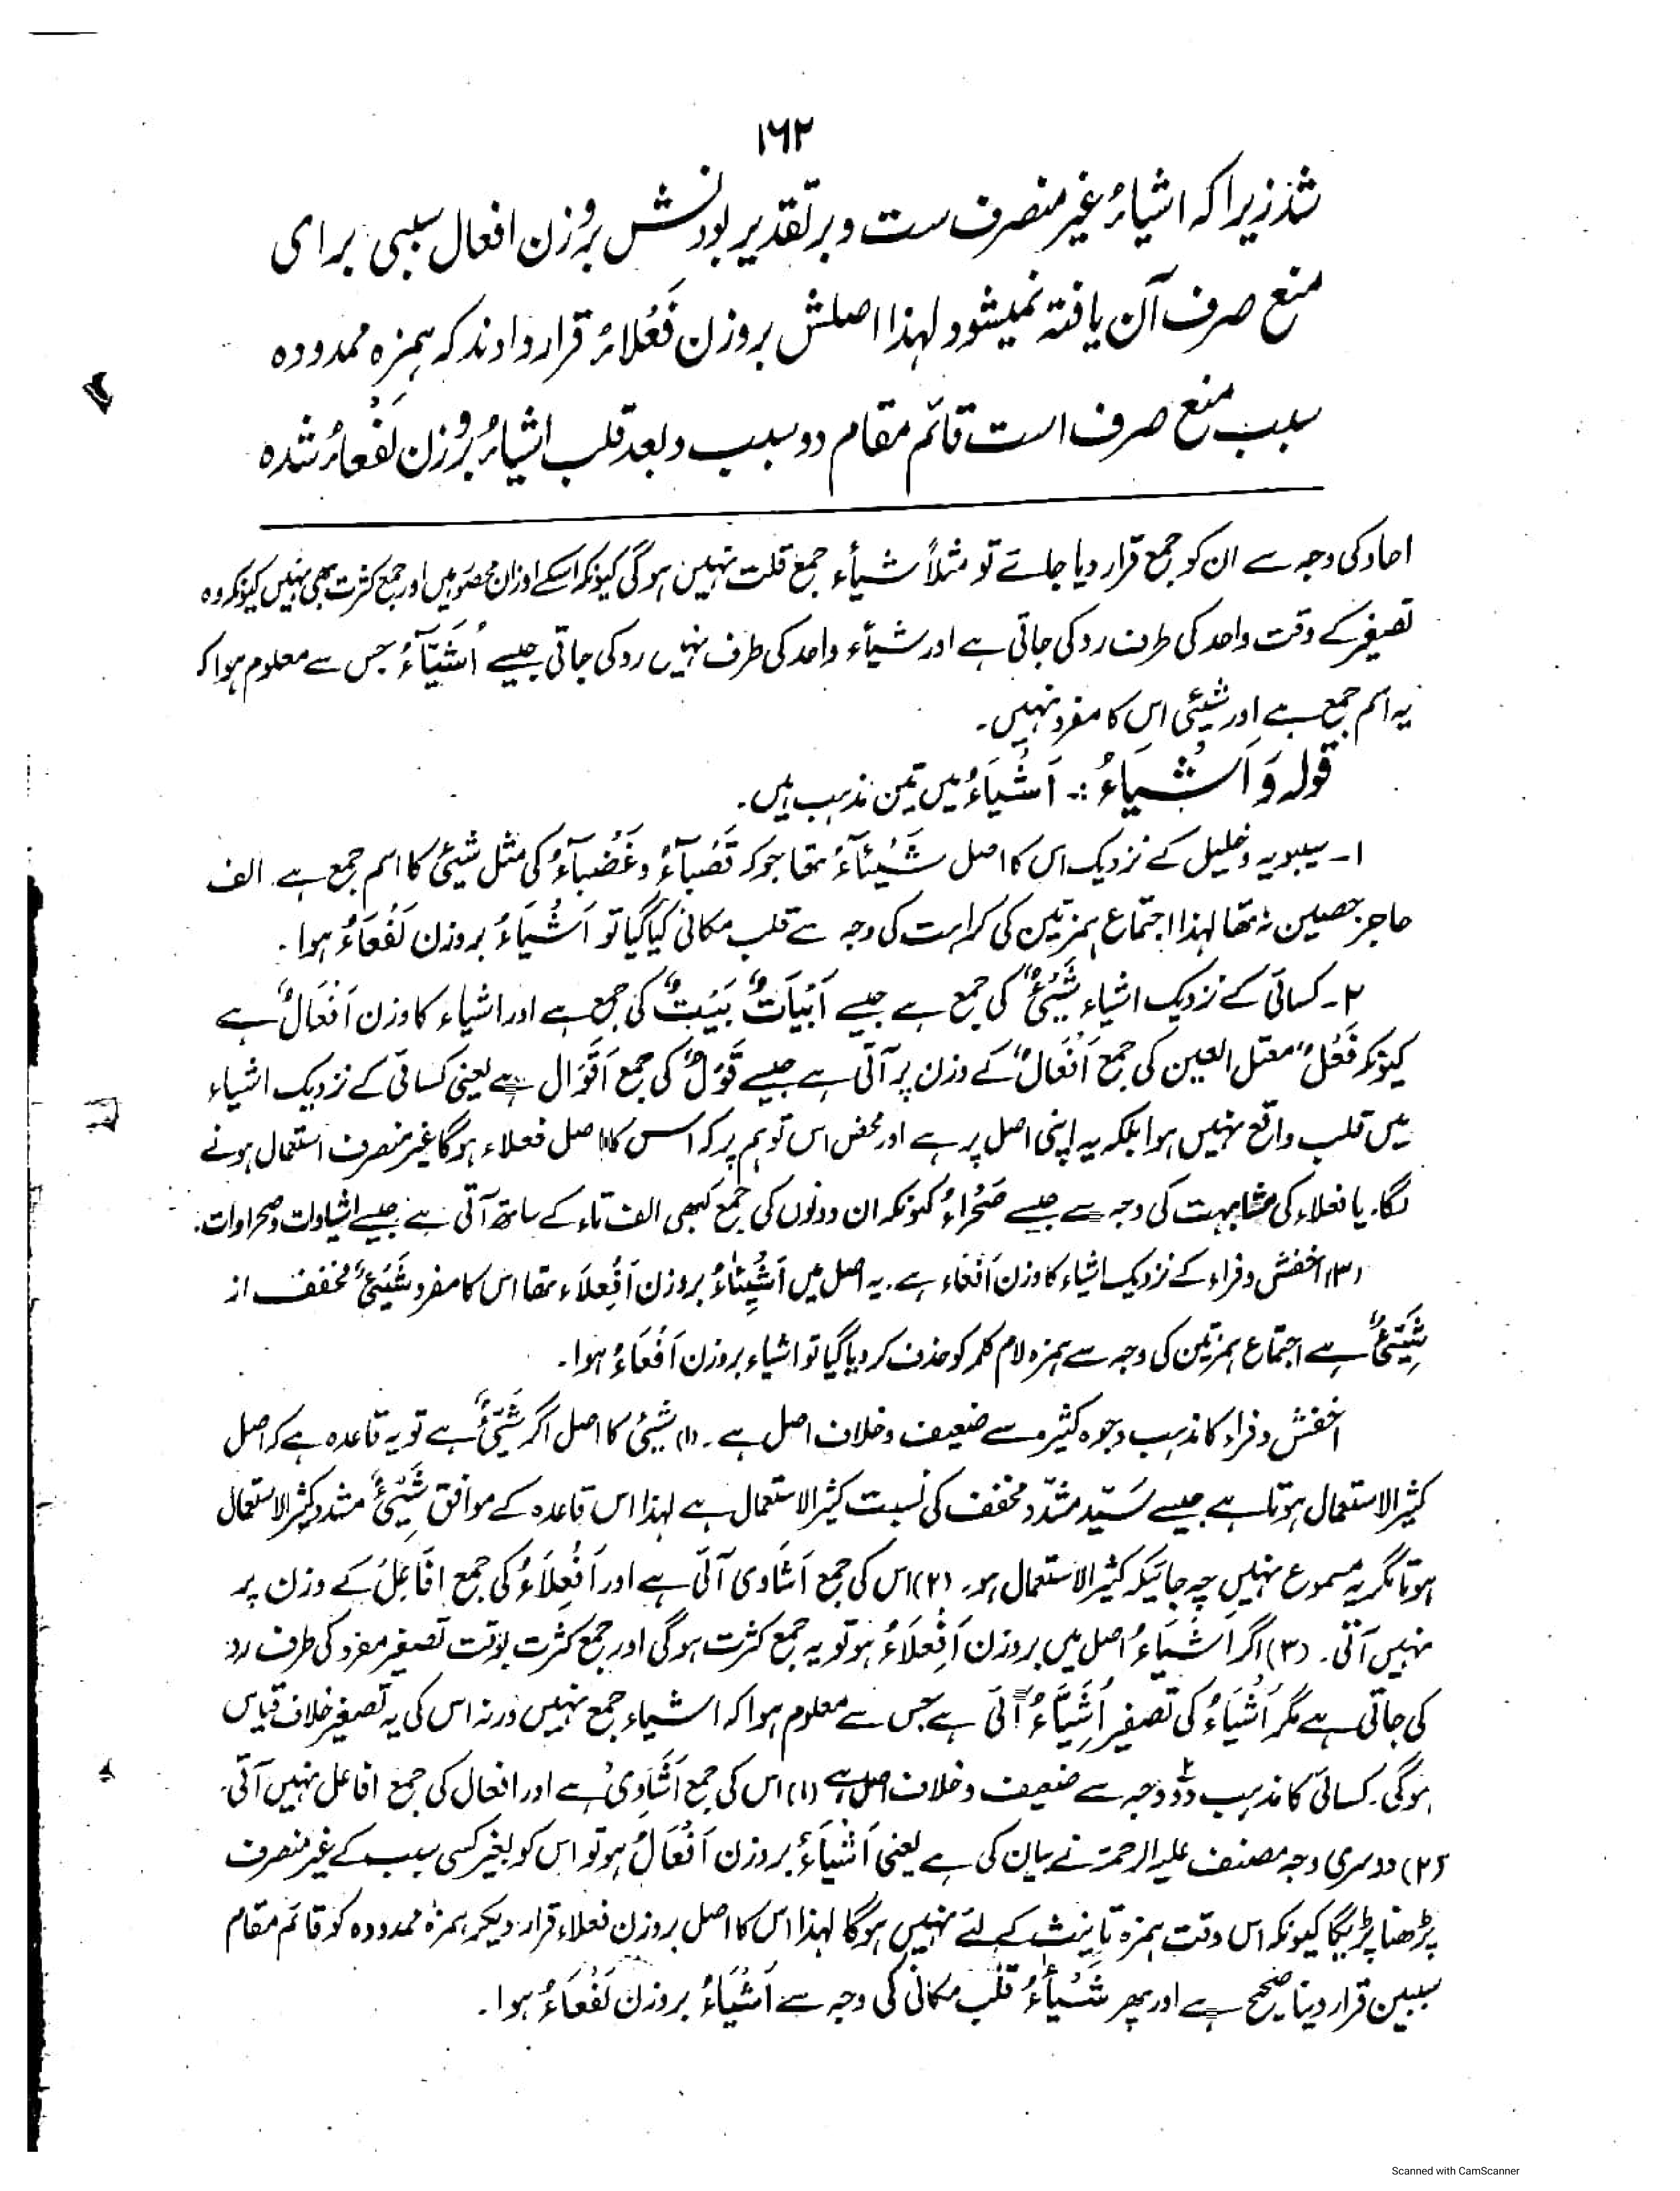 ۱۶۲
شد زیرا کہ اشیاءُ غیر منصرف ست و بر تقدیر بودنش بر وزن افعال سببی برای
منع صرف آن یافتہ نمیشود لہذا اصلش بر وزن فَعْلاءُ قرار دادند کہ ہمزہ ممدودہ
سبب منع صرف است قائم مقام دو سبب و بعد قلب اشیاءُ بر وزن لَفْعاءُ شدہ
احاد کی وجہ سے ان کو جمع قرار دیا جائے تو مثلاً شیأء جمع قلت نہیں ہو گی کیونکہ اسکے اوزان محصور ہیں اور جمع کثرت بھی نہیں کیونکہ وہ
تصغیر کے وقت واحد کی طرف رد کی جاتی ہے اور شیأء واحد کی طرف نہیں رد کی جاتی جیسے اُشَیَّآءُ جس سے معلوم ہوا کہ
یہ اسم جمع ہے اور شیئی اس کا مفرد نہیں۔
قولہ وَ اَشْیَاءُ :۔ اَشْیَاءُ میں تین مذہب ہیں۔
۱۔ سیبویہ و خلیل کے نزدیک اس کا اصل شَیْئَآءُ تھا جو کہ قَصْبَآءُ و غَضْبَآءُ کی مثل شیئ کا اسم جمع ہے۔ الف
حاجز حصین نہ تھا لہذا اجتماع ہمزتین کی کراہت کی وجہ سے قلب مکانی کیا گیا تو اَشْیَاءُ بروزن لَفْعَاءُ ہوا۔
۲۔ کسائی کے نزدیک اشیاء شَیْئٌ کی جمع ہے جیسے اَبْیَاتٌ بَیْتٌ کی جمع ہے اور اشیاء کا وزن اَفْعَالٌ ہے
کیونکہ فَعْلٌ معتل العین کی جمع اَفْعَالٌ کے وزن پر آتی ہے جیسے قَوْلٌ کی جمع اَقْوَال ہے یعنی کسائی کے نزدیک اشیاء
میں قلب واقع نہیں ہوا بلکہ یہ اپنی اصل پر ہے اور محض اس توہم پر کہ اس کا اصل فعلاء ہو گا غیر منصرف استعمال ہونے
لگا۔ یا فعلاء کی مشابہت کی وجہ سے جیسے صَحْراءُ کیونکہ ان دونوں کی جمع کبھی الف تاء کے ساتھ آتی ہے جیسے اشیاوات وصحراوات۔
(۳) اخفش و فراء کے نزدیک اشیاء کا وزن اَفْعَاء ہے۔ یہ اصل میں اَشْیِئَاءُ بروزن اَفْعِلَاء تھا اس کا مفرد شَیْئٌ مخفف از
شَیِّئٌ ہے اجتماع ہمزتین کی وجہ سے ہمزہ لام کلمہ کو حذف کر دیا گیا تو اشیاء بروزن اَفْعَاءُ ہوا۔
اخفش و فراء کا مذہب وجوہ کثیرہ سے ضعیف و خلاف اصل ہے۔ (۱) شیئ کا اصل اگر شَیِّئٌ ہے تو یہ قاعدہ ہے کہ اصل
کثیر الاستعمال ہوتا ہے جیسے سَیِّد مشدّد مخفف کی نسبت کثیر الاستعمال ہے لہذا اس قاعدہ کے موافق شَیِّئٌ مشدد کثیر الاستعمال
ہوتا مگر یہ مسموع نہیں چہ جائیکہ کثیر الاستعمال ہو۔ (۲) اس کی جمع اَشَاوی آتی ہے اور اَفْعِلَاءُ کی جمع اَفَاعِلُ کے وزن پر
نہیں آتی۔ (۳) اگر اَشْیَاءُ اصل میں بروزن اَفْعِلَاءُ ہو تو یہ جمع کثرت ہو گی اور جمع کثرت بوقت تصغیر مفرد کی طرف رد
کی جاتی ہے مگر اَشْیَاءُ کی تصغیر اُشَیَّاءُ آتی ہے جس سے معلوم ہوا کہ اشیاء جمع نہیں ورنہ اس کی یہ تصغیر خلاف قیاس
ہو گی۔ کسائی کا مذہب دو وجہ سے ضعیف و خلاف اصل ہے (۱) اس کی جمع اَشَاوِیُ ہے اور افعال کی جمع افاعل نہیں آتی۔
(۲) دوسری وجہ مصنف علیہ الرحمۃ نے بیان کی ہے یعنی اَشْیَاءُ بروزن اَفْعَالٌ ہو تو اس کو بغیر کسی سبب کے غیر منصرف
پڑھنا پڑیگا کیونکہ اس وقت ہمزہ تانیث کے لئے نہیں ہو گا لہذا اس کا اصل بروزن فعلاء قرار دیکر ہمزہ ممدودہ کو قائم مقام
سببین قرار دینا صحیح ہے اور پھر شَیْأءُ قلب مکانی کی وجہ سے اَشْیَاءُ بروزن لَفْعَاءُ ہوا۔
Scanned with CamScanner